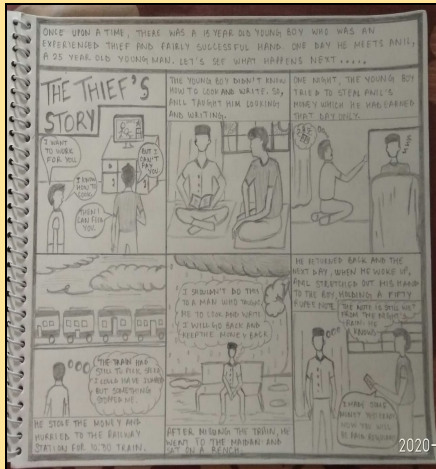 ONCE UPON A TIME, THERE WAS A 15 YEAR OLD YOUNG BOY WHO WAS AN
EXPERIENCED THIEF AND FAIRLY SUCCESSFUL HAND. ONE DAY HE MEETS ANIL,
A 25 YEAR OLD YOUNG MAN. LET'S SEE WHAT HAPPENS NEXT .....
THE THIEF'S
STORY
I WANT
TO WORK
FOR YOU.
BUT I
CAN'T
PAY
YOU
I KNOW
HOW TO
COOK.
THEN I
CAN FEED
YOU.
THE YOUNG BOY DIDN'T KNOW
HOW TO COOK AND WRITE. SO,
ANIL TAUGHT HIM COOKING
AND WRITING.
ONE NIGHT, THE YOUNG BOY
TRIED TO STEAL ANIL'S
MONEY WHICH HE HAD EARNED
THAT DAY ONLY.
THE TRAIN HAD
STILL TO PICK
I COULD HAVE JUMPED
BUT SOMETHING
STOPPED ME.
HE STOLE THE MONEY AND
HURRIED TO THE RAILWAY
STATION FOR 10.30 TRAIN.
I SHOULDN'T DO THIS
TO A MAN WHO TAUGHT
ME TO COOK AND WRITE.
I WILL GO BACK AND
KEEP THE MONEY BACK
AFTER MISSING THE TRAIN, HE
WENT TO THE MAIDAN AND
SAT ON A BENCH.
HE RETURNED BACK AND THE
NEXT DAY, WHEN HE WOKE UP,
ANIL STRETCHED OUT HIS HAND
TO THE BOY, HOLDING A FIFTY
RUPEE NOTE.
THE NOTE IS STILL WET
FROM THE NIGHT'S
RAIN. HE
KNOWS
I MADE SOME
MONEY YESTERDAY
NOW YOU WILL
BE PAID REGULARLY
2020-